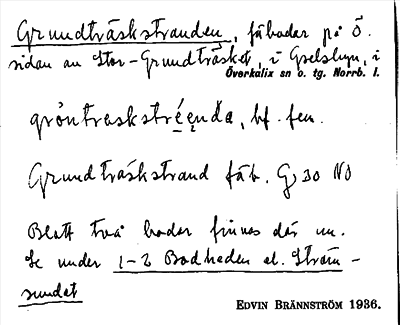 Grundträskstranden, fäbodar på Ö.
sidan av Stor-Grundträsket, i Gyljen, i
Överkalix sn o. tg. Norrb. l.
bf. fem.
Grundträskstrand fäb. Gj 30 NO
Blott två bodar finnas där nu.
Se under 1-2 Bodheden el. Ström-
sundet
EDVIN BRÄNNSTRÖM 1936.